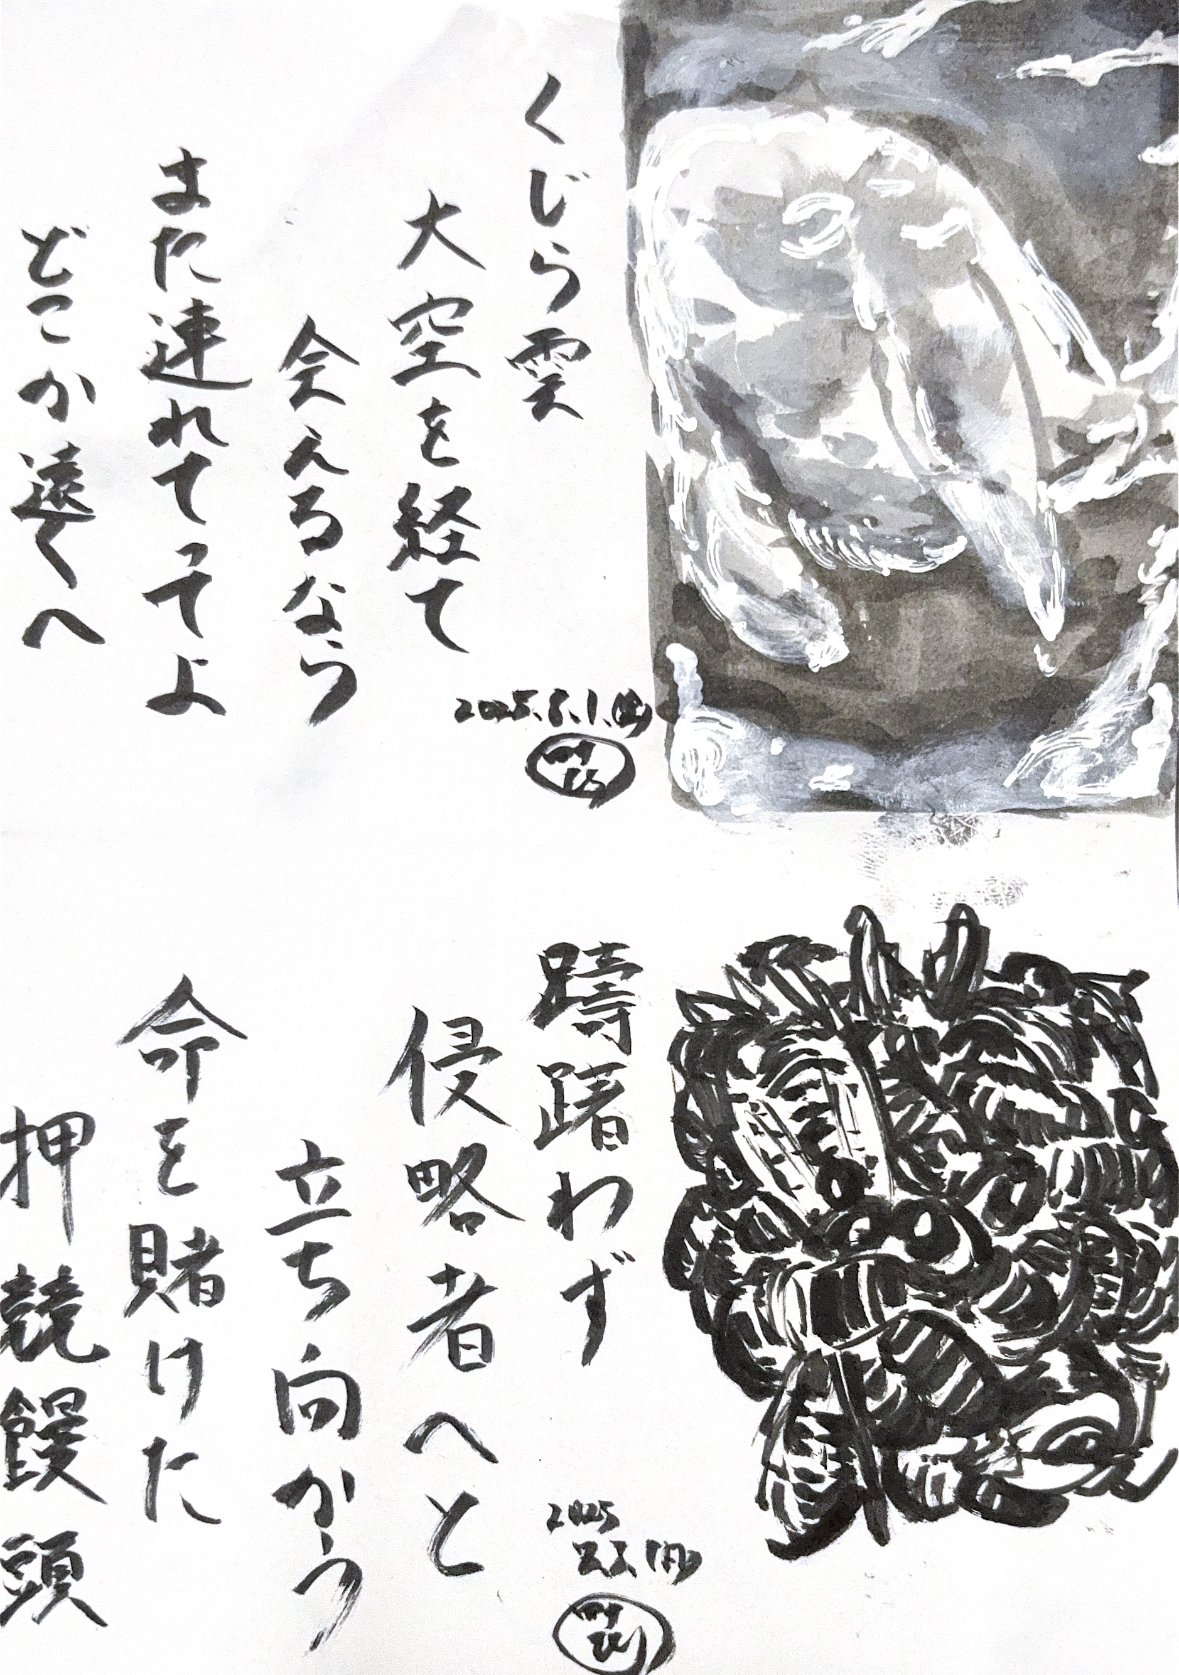 くじら雲
大空を経て
会えるなら
また連れてってよ
どこか遠くへ
2025.8.1.(金)
躊躇わず
侵略者へと
立ち向かう
命を賭けた
押競饅頭
2025